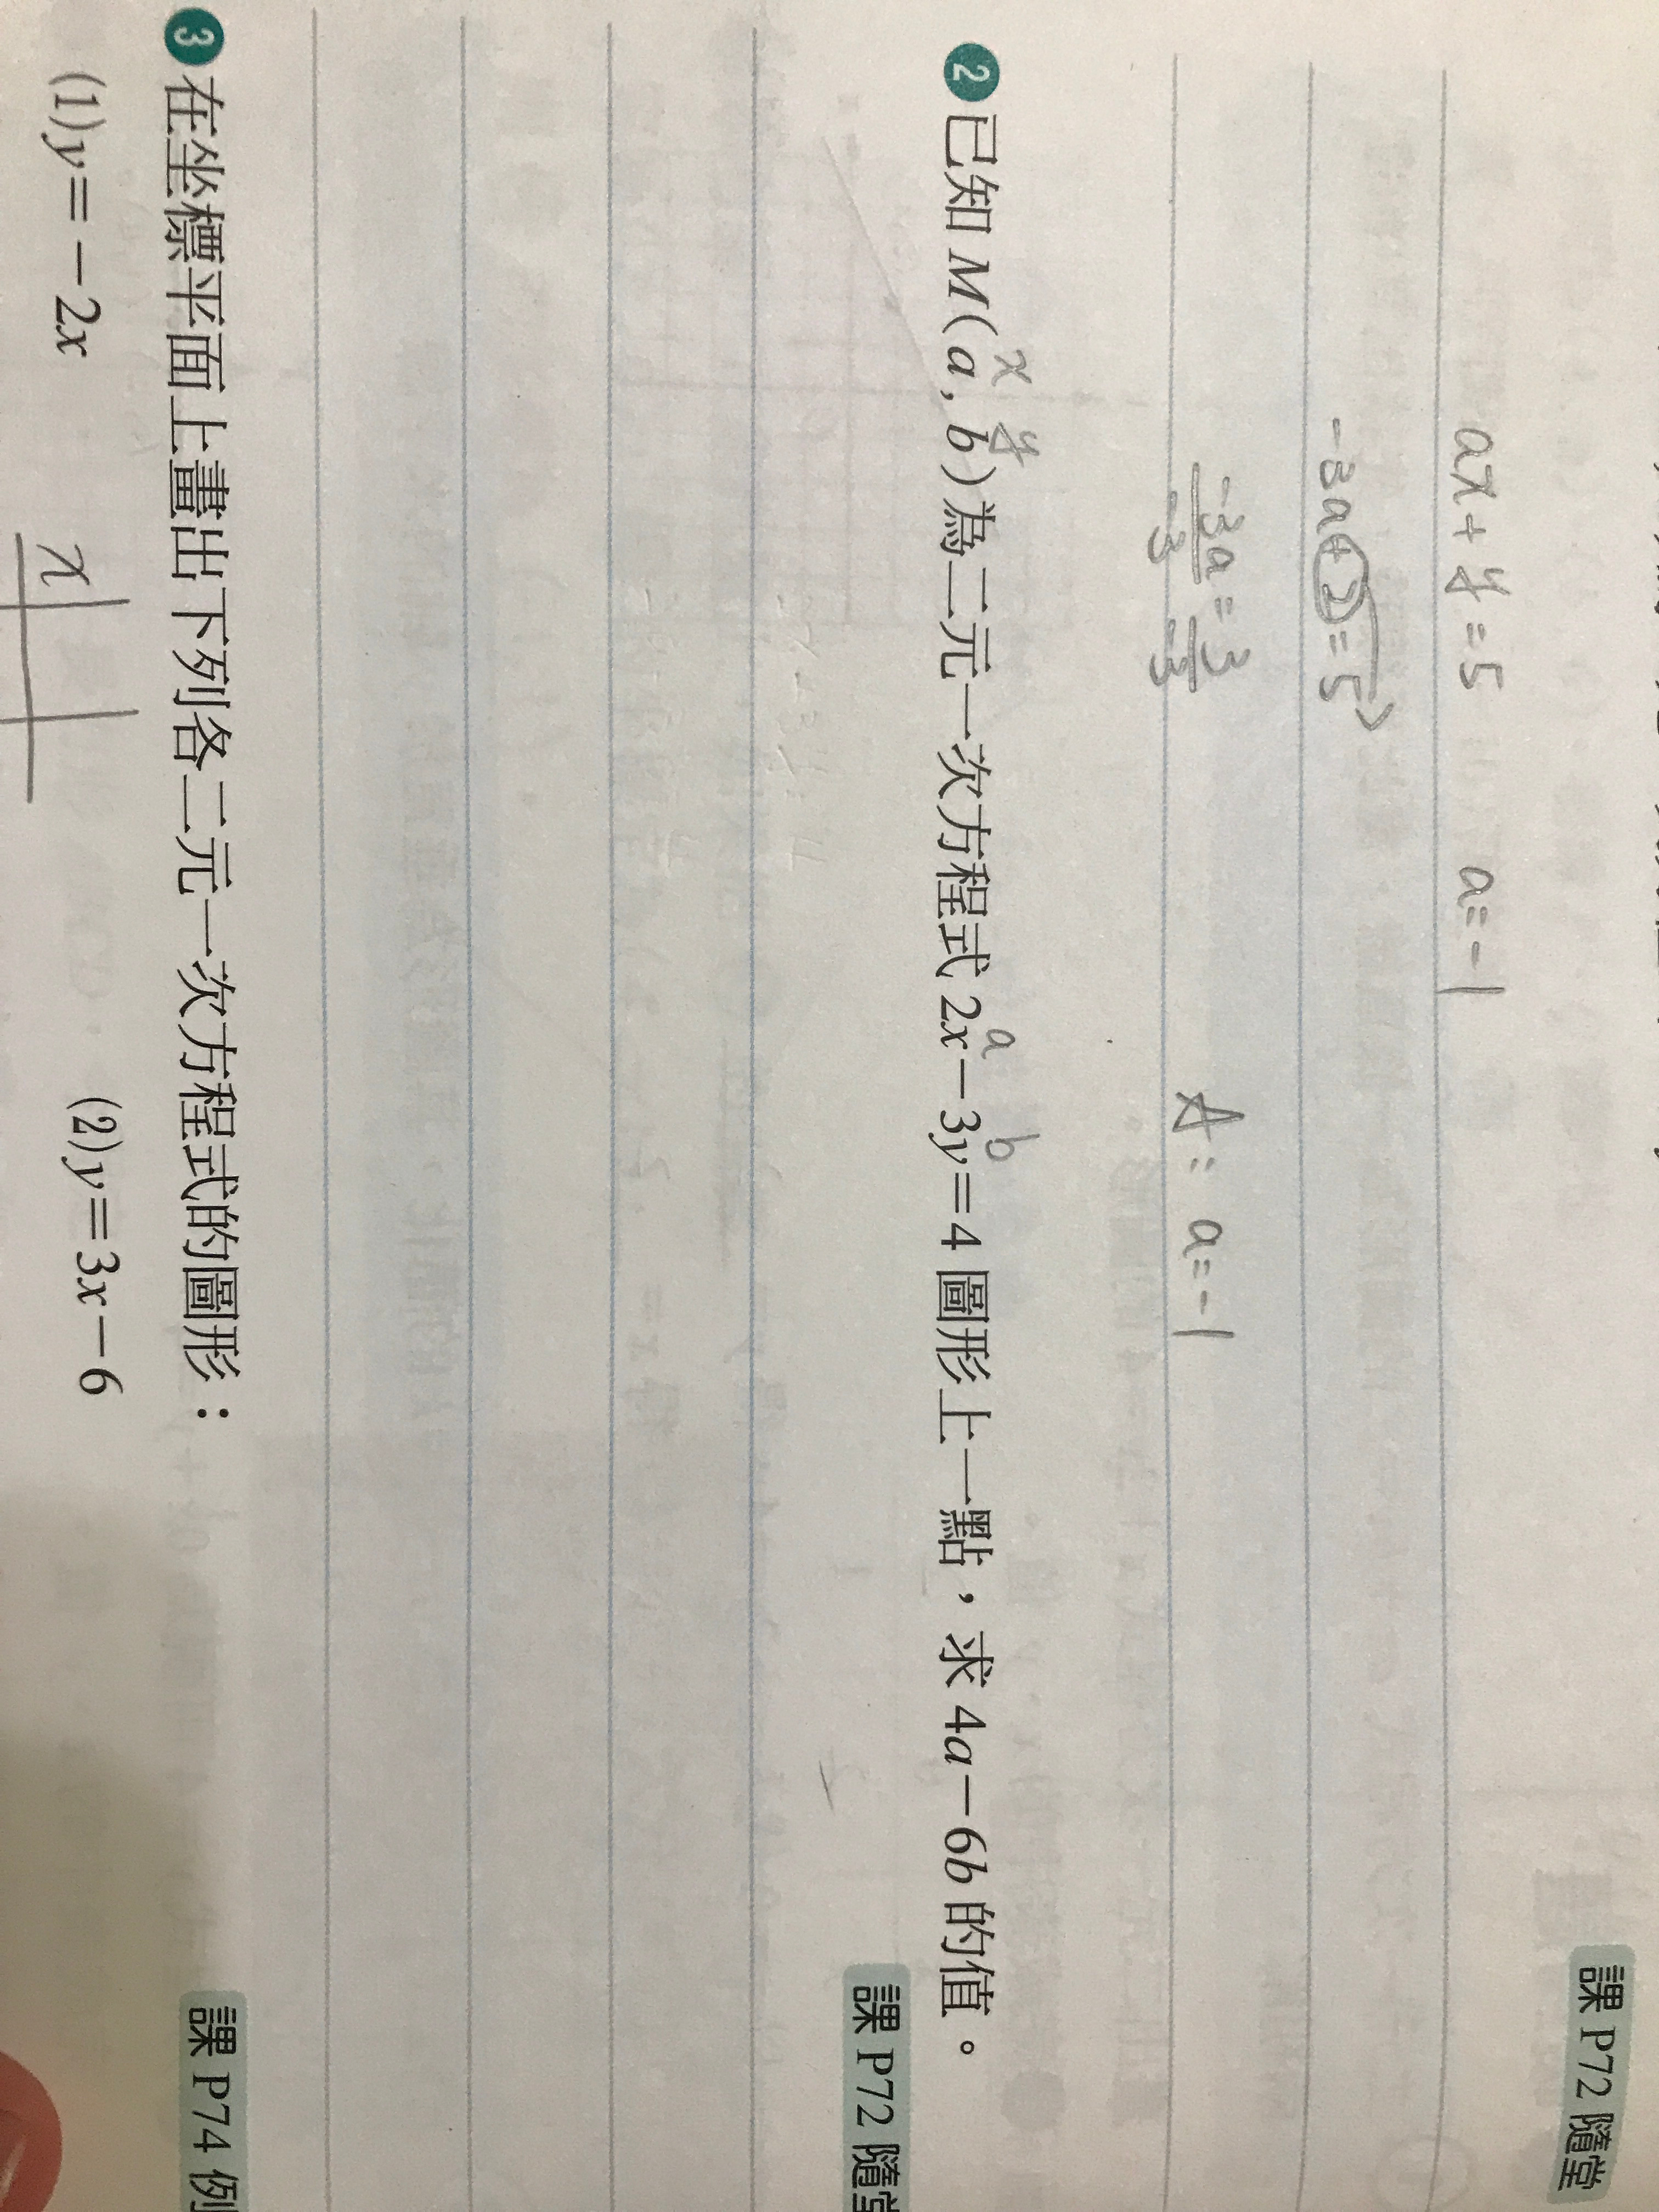 課 P72 隨堂
ax+y=5 a=-1
-3a+2=5
-3a/-3=3/-3 A: a=-1
x y a b
❷已知 M(a, b)為二元一次方程式 2x-3y=4 圖形上一點,求 4a-6b 的值。
課 P72 隨堂
❸在坐標平面上畫出下列各二元一次方程式的圖形:
課 P74 例
(1)y=-2x (2)y=3x-6
x